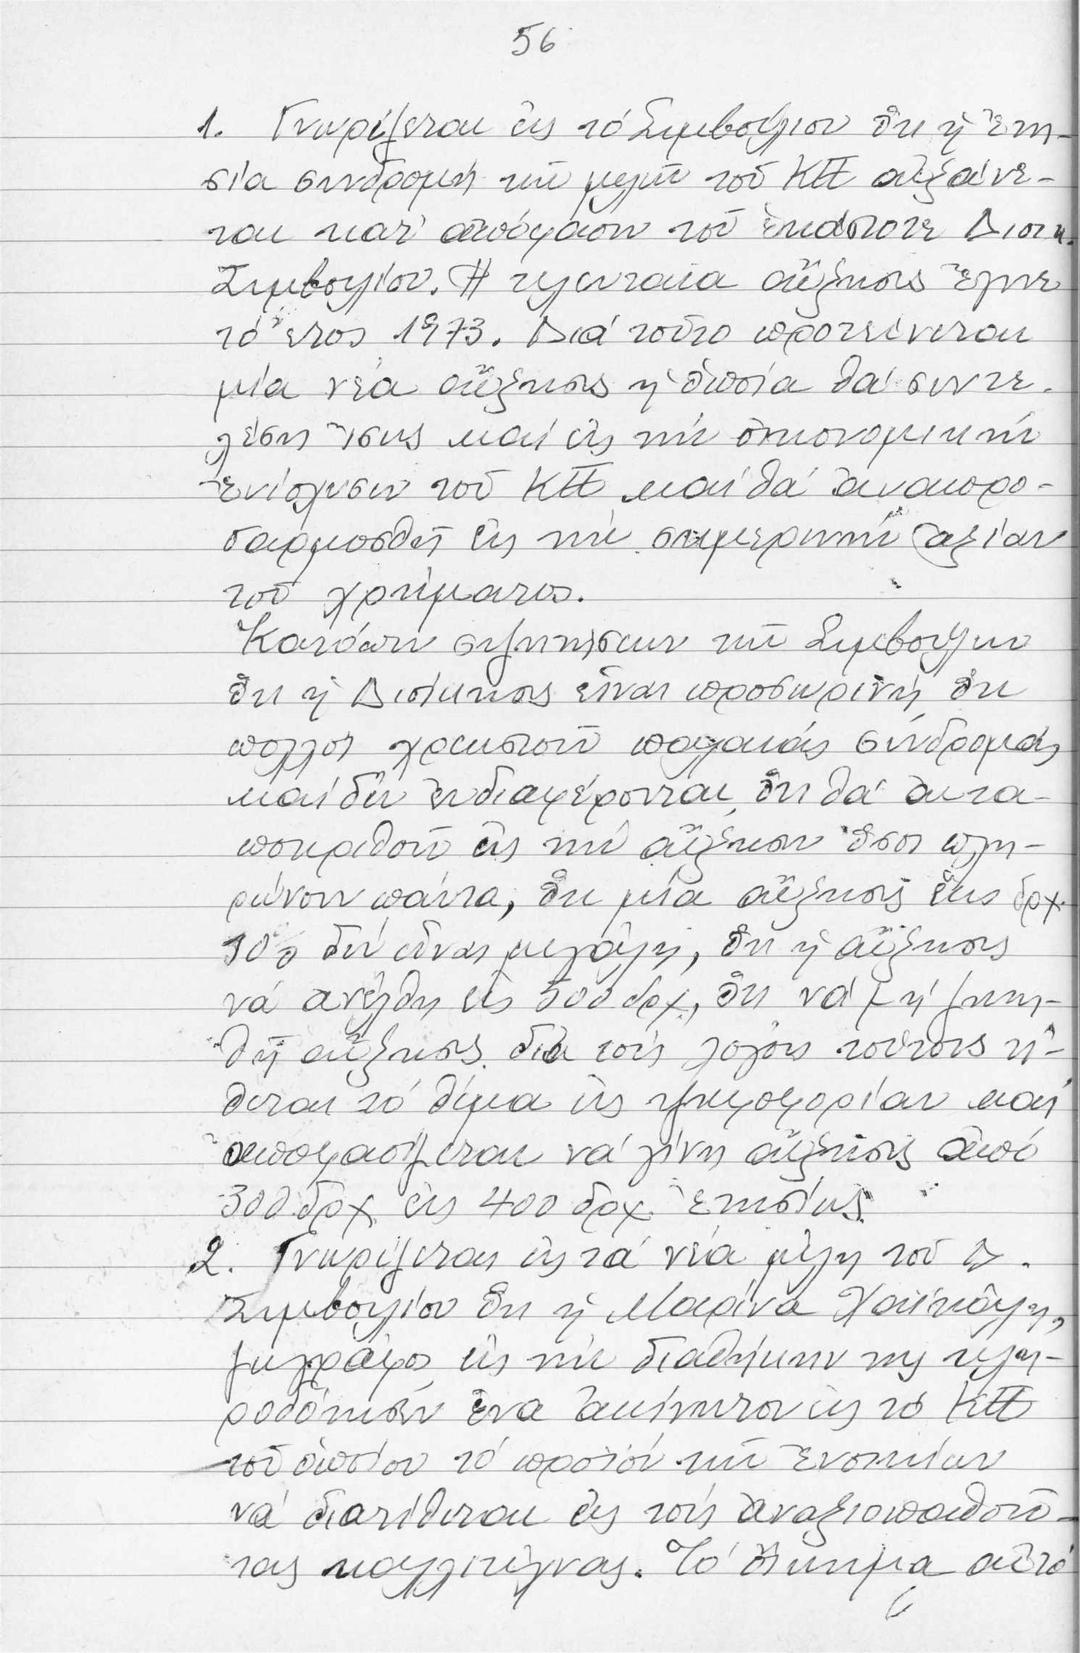 56
1. Γνωρίζεται εἰς τό Συμβούλιον ὅτι ἡ ἐτη-
σία συνδρομή τῶν μελῶν τοῦ ΚΠ αὐξάνε-
ται κατ' ἀπόφασιν τοῦ ἑκάστοτε Διοικ.
Συμβουλίου. Ἡ τελευταία αὔξησις ἔγινε
τό ἔτος 1973. Διά τοῦτο προτείνεται
μία νέα αὔξησις ἡ ὁποία θά συντε-
λέση ἴσως καί εἰς τήν οἰκονομικήν
ἐνίσχυσιν τοῦ ΚΠ καί θά ἀναπρο-
σαρμοσθῆ εἰς τήν σημερινήν ἀξίαν
τοῦ χρήματος.
Κατόπιν συζητήσεων τῶν Συμβούλων
ὅτι ἡ Διοίκησις εἶναι προσωρινή, ὅτι
πολλοί χρεωστοῦν παλαιάς συνδρομάς
καί δέν ἐνδιαφέρονται, ὅτι θά ἀντα-
ποκριθοῦν εἰς τήν αὔξησιν ὅσοι πλη-
ρώνουν πάντα, ὅτι μία αὔξησις ἕως δρχ.
100 δέν εἶναι μεγάλη, ὅτι ἡ αὔξησις
νά ἀνέλθη εἰς 500 δρχ, ὅτι νά μή ζητη-
θῆ αὔξησις διά τούς λόγους τούτους τί-
θεται τό θέμα εἰς ψηφοφορίαν καί
ἀποφασίζεται νά γίνη αὔξησις ἀπό
300 δρχ εἰς 400 δρχ ἐτησίως.
2. Γνωρίζεται εἰς τά νέα μέλη τοῦ Δ.
Συμβουλίου ὅτι ἡ Μαρίνα
ζωγράφος εἰς τήν διαθήκην της κλη-
ροδότησεν ἕνα ἀκίνητον εἰς τό ΚΠ
τοῦ ὁποίου τό προϊόν τῶν ἐνοικίων
νά διατίθεται εἰς τούς ἀναξιοπαθοῦν-
τας καλλιτέχνας. Τό οἴκημα αὐτό